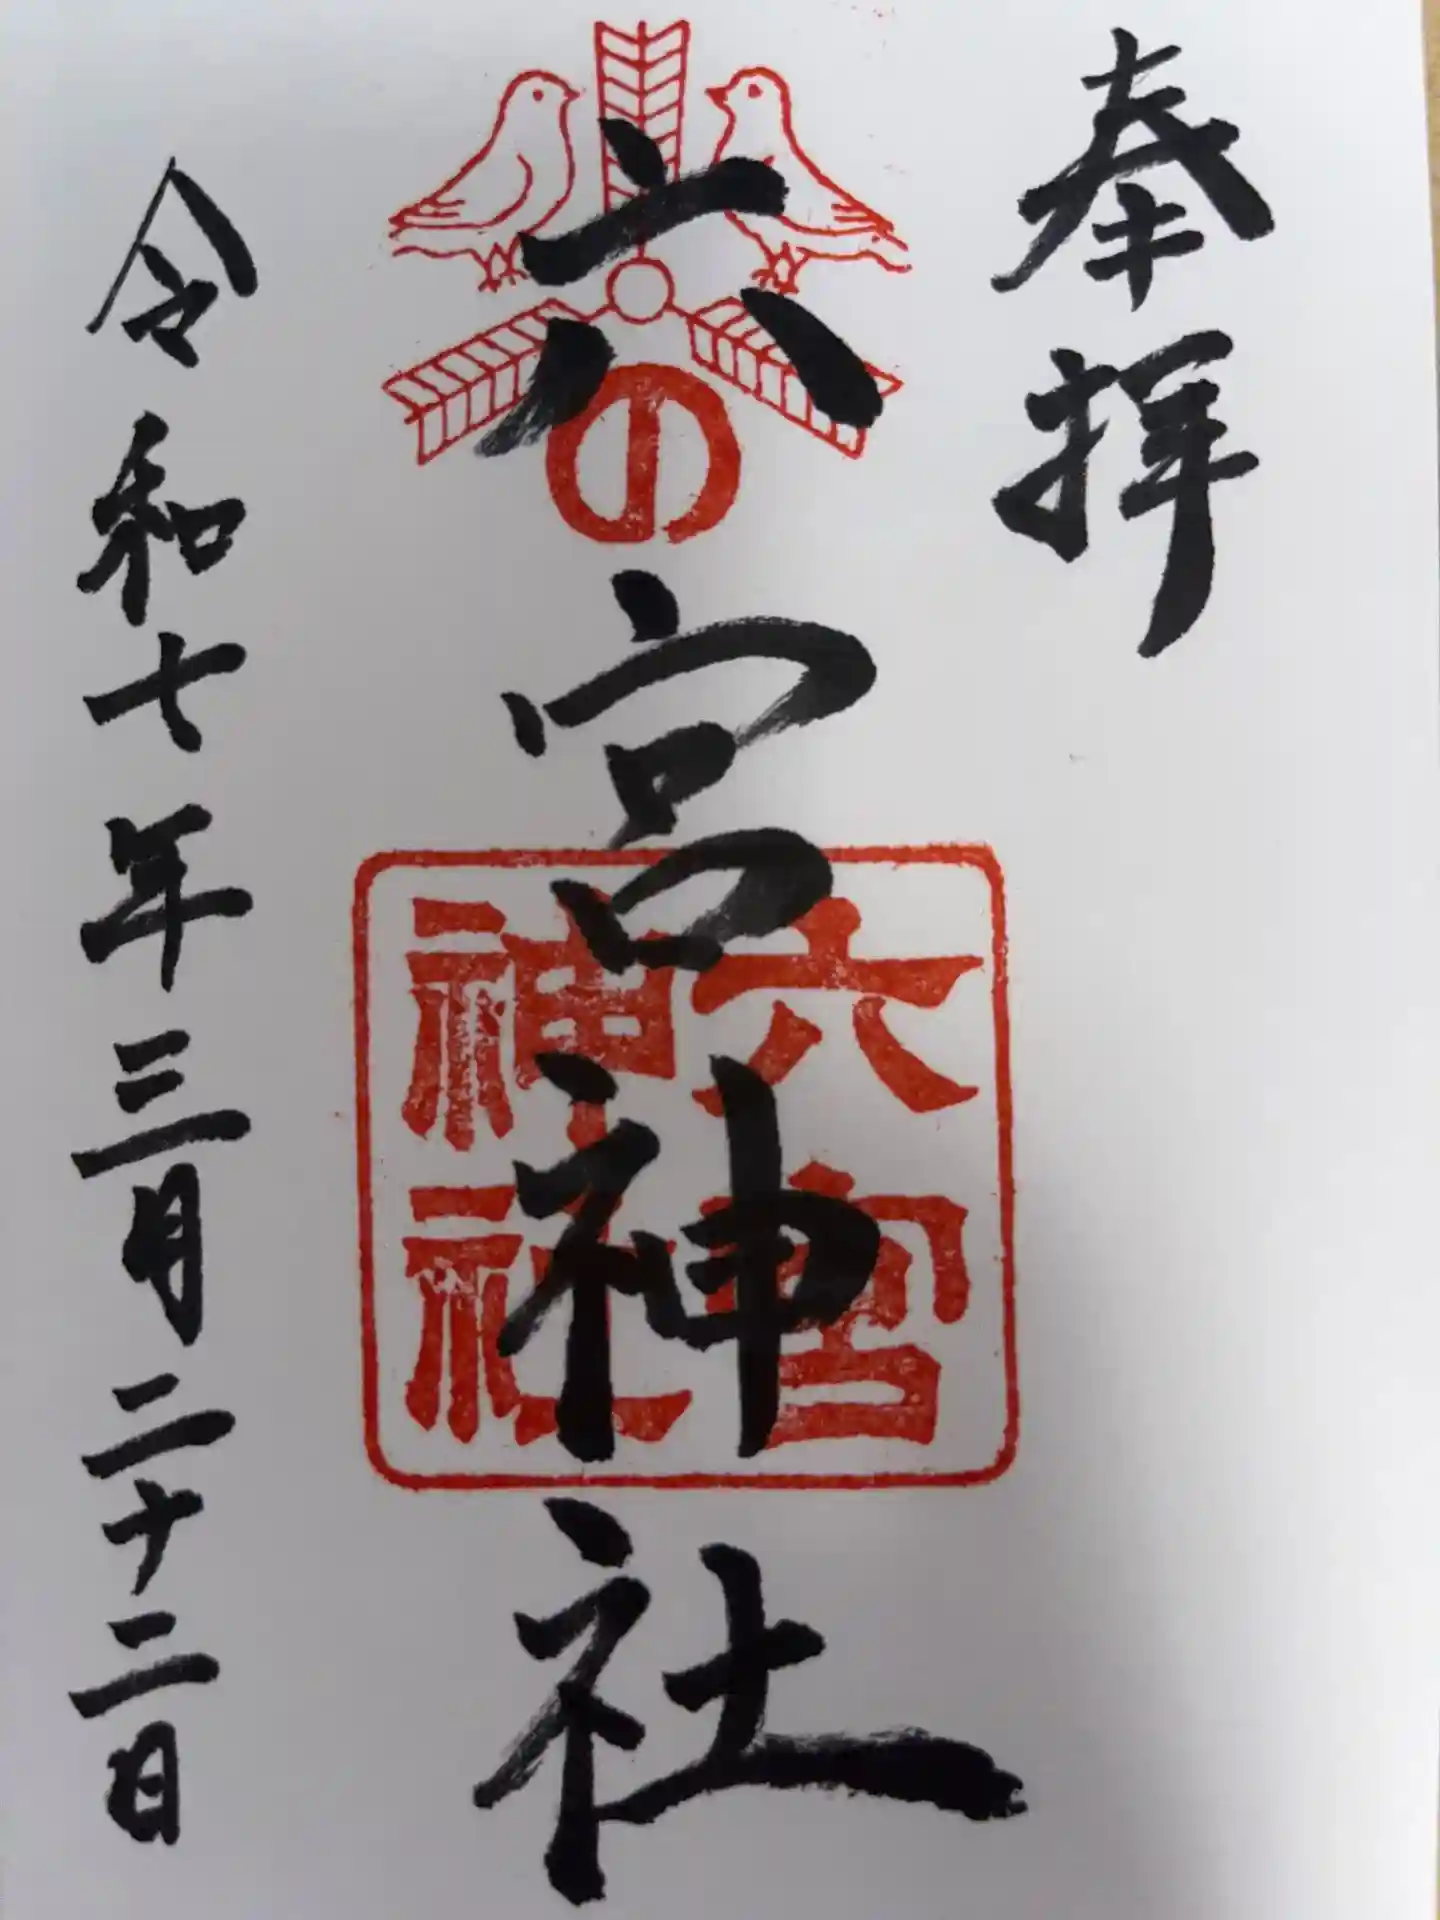 奉拝
六の宮神社
六宮
神社
令和七年三月二十二日